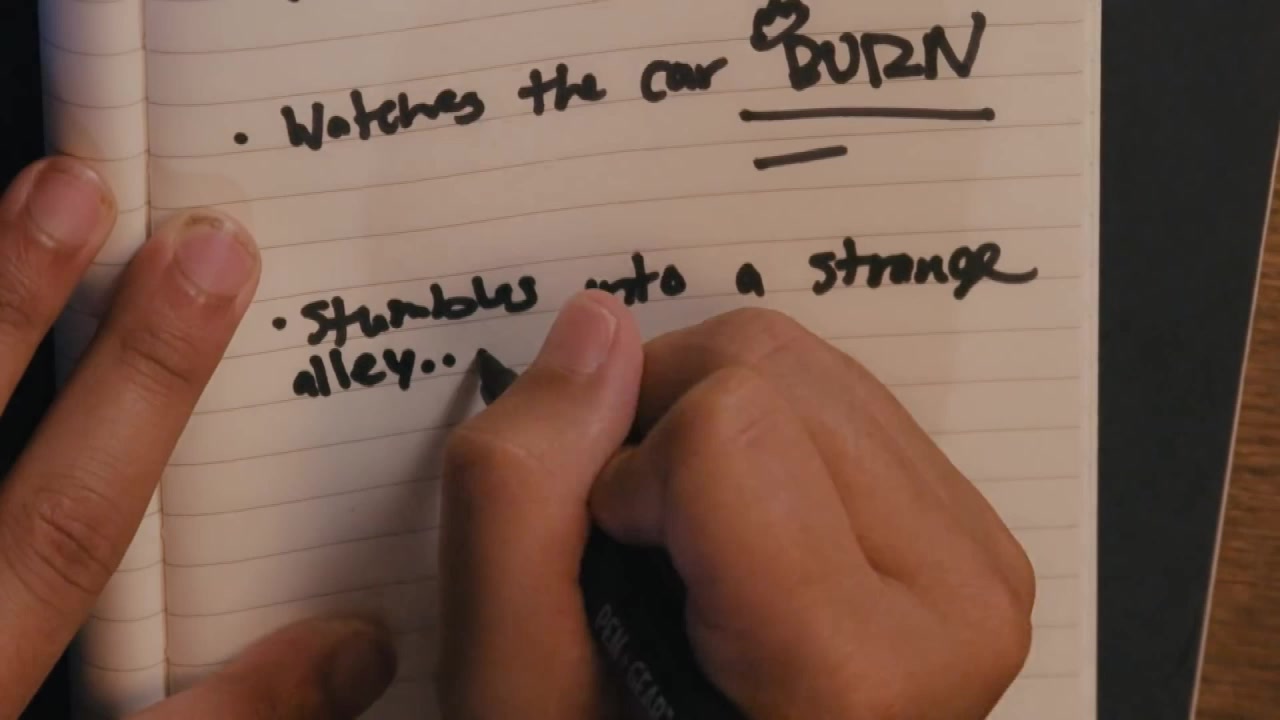 • Watches the car BURN
• Stumbles into a strange
alley..
PEN+GEAR™